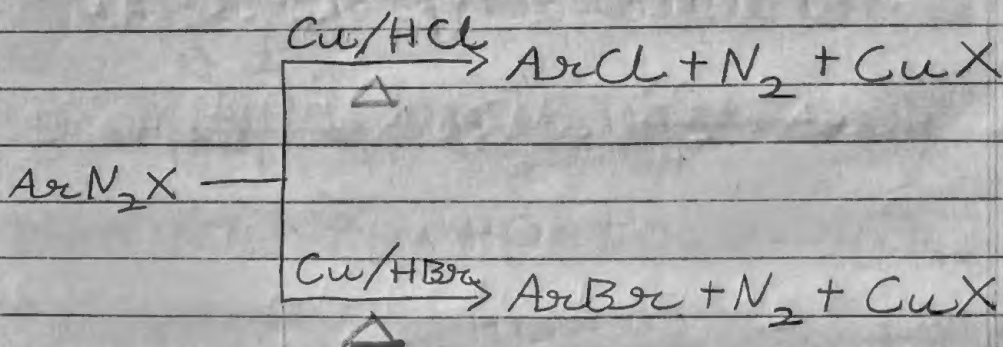 Cu/HCl
Δ
ArCl + N₂ + CuX
ArN₂X
Cu/HBr
Δ
ArBr + N₂ + CuX